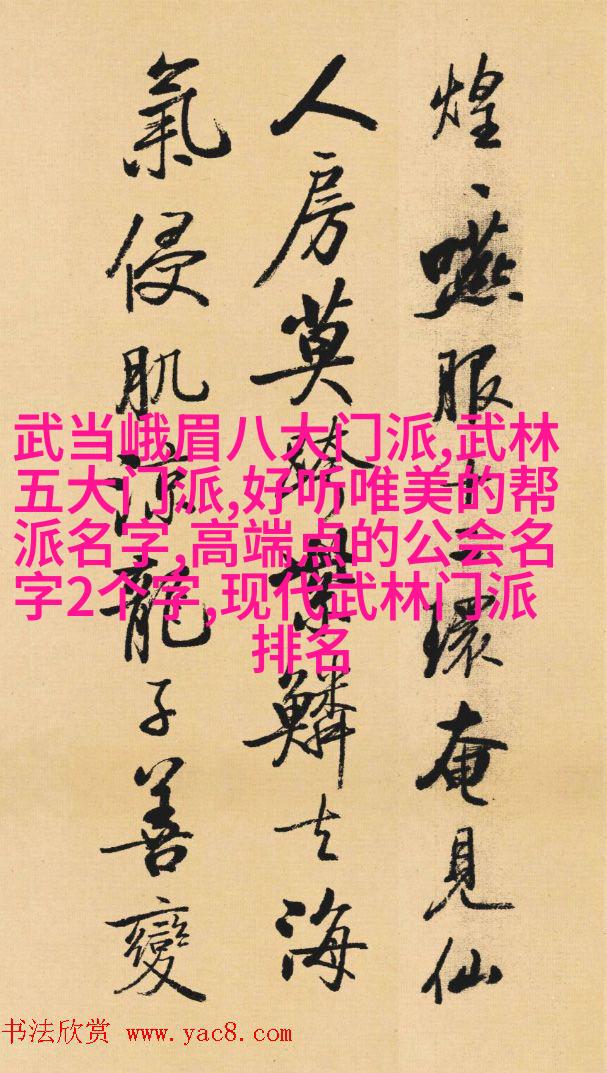 煌〻嚥服十二環奄見仙
人房莫跨紫鱗去海
氣侵肌涼龍子善變
武当峨眉八大门派,武林
五大门派,好听唯美的帮
派名字,高端点的公会名
字2个字,现代武林门派
排名
书法欣赏 www.yac8.com